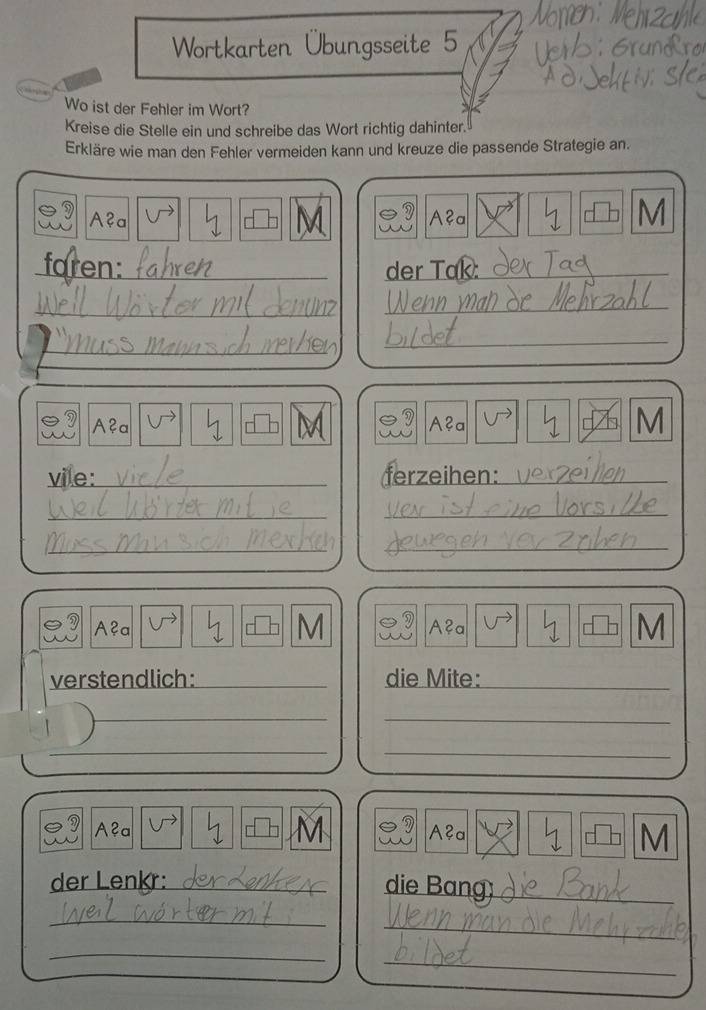 Nomen: Mehrzahl
Wortkarten Übungsseite 5
Verb: Grundfro
Adjektiv: Ste
Wo ist der Fehler im Wort?
Kreise die Stelle ein und schreibe das Wort richtig dahinter.
Erkläre wie man den Fehler vermeiden kann und kreuze die passende Strategie an.
A?a M
faren: fahren
Weil Wörter mit
muss mann sich merken
A?a M
der Tak: der Tag
Wenn man de Mehrzahl
bildet
A?a M
vile: viele
Weil Wörter mit ie
muss man sich merken
A?a M
ferzeihen: verzeihen
ver ist eine Vorsilbe
A?a M
verstendlich:
A?a M
die Mite:
A?a M
der Lenkr: der Lenker
Weil wörter mit
A?a M
die Bang: die Bank
Wenn man die
bildet